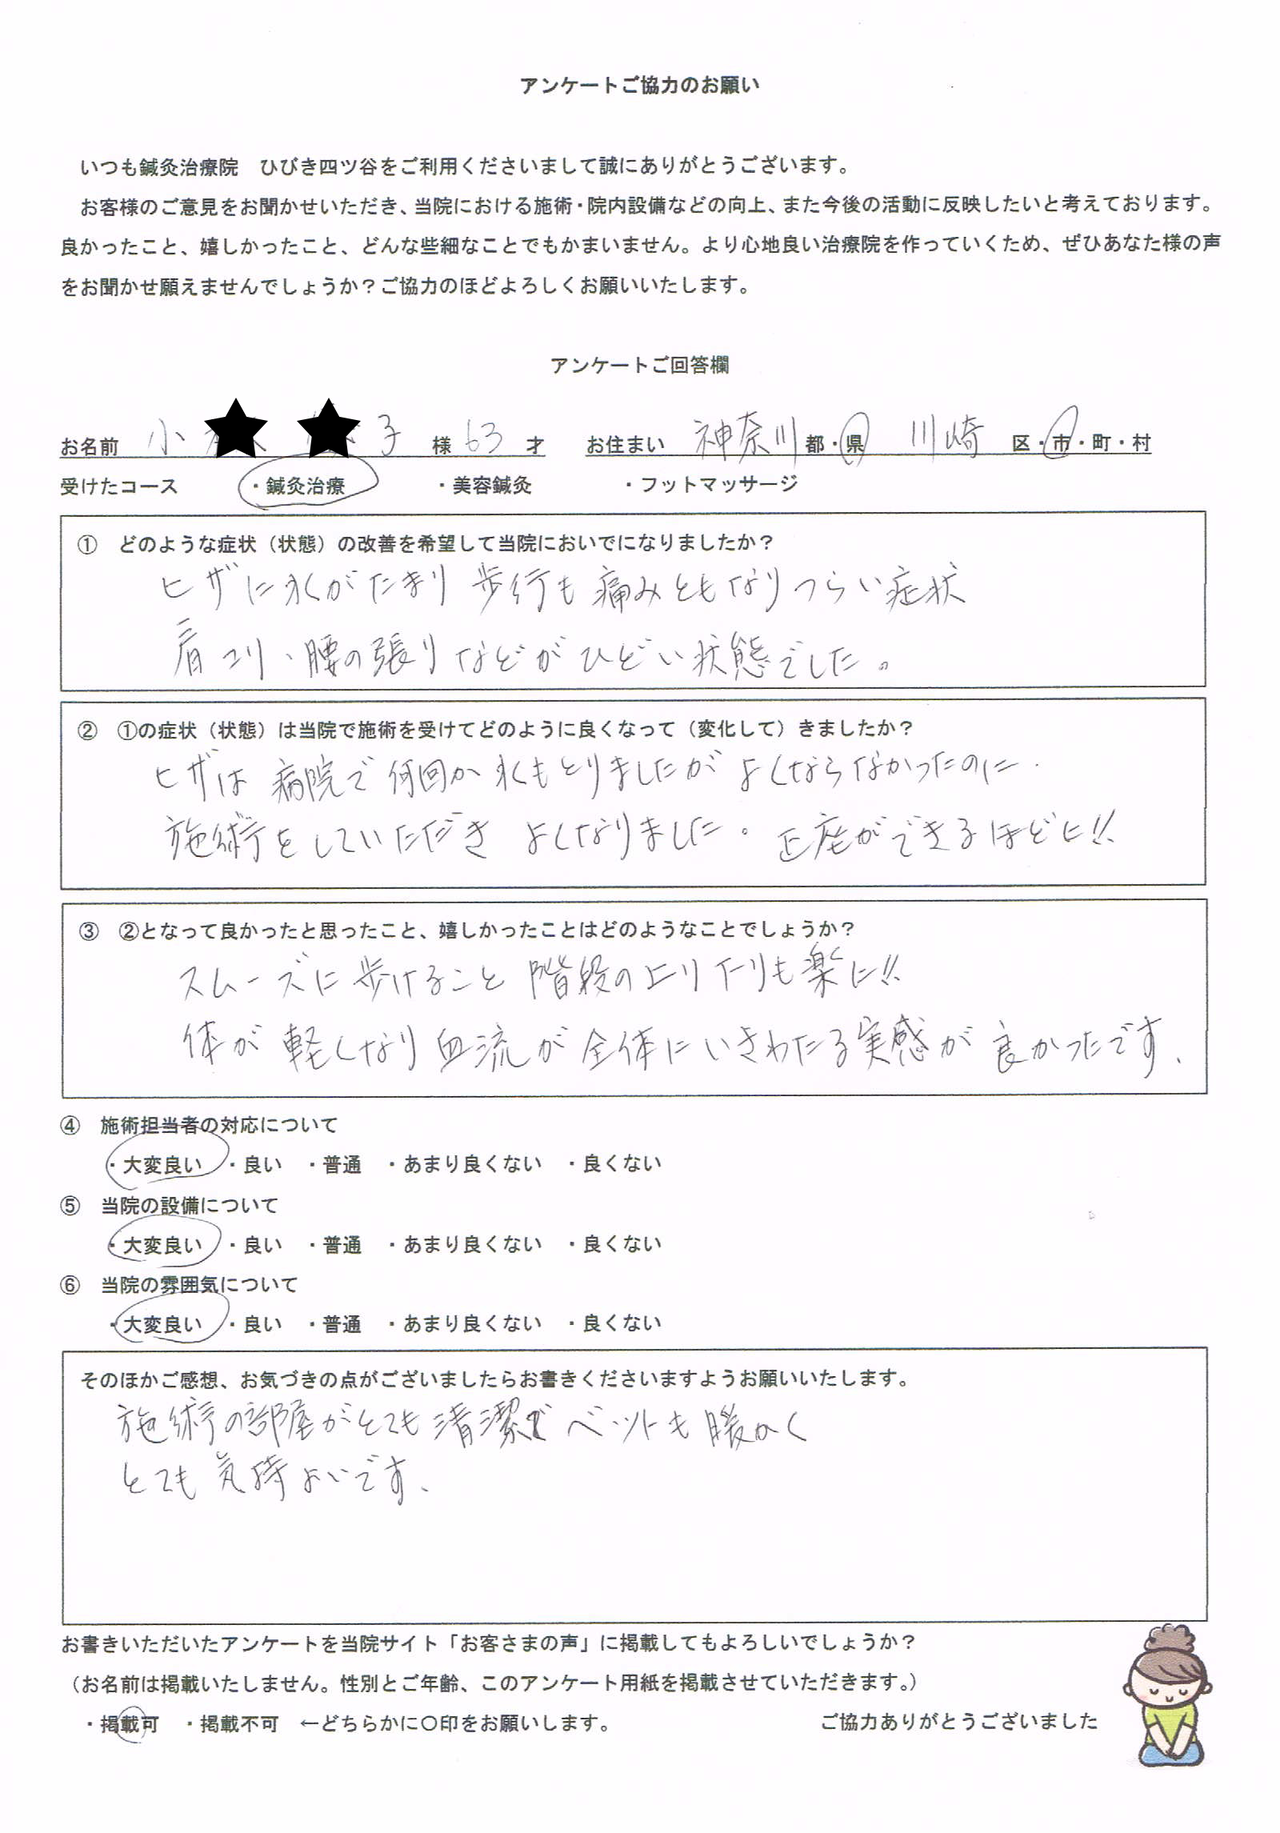 アンケートご協力のお願い
いつも鍼灸治療院　ひびき四ツ谷をご利用くださいまして誠にありがとうございます。
お客様のご意見をお聞かせいただき、当院における施術・院内設備などの向上、また今後の活動に反映したいと考えております。
良かったこと、嬉しかったこと、どんな些細なことでもかまいません。より心地良い治療院を作っていくため、ぜひあなた様の声
をお聞かせ願えませんでしょうか？ご協力のほどよろしくお願いいたします。
アンケートご回答欄
お名前 小 子 様 63 才 お住まい 神奈川 都・県 川崎 区・市・町・村
受けたコース ・鍼灸治療 ・美容鍼灸 ・フットマッサージ
① どのような症状（状態）の改善を希望して当院においでになりましたか？
ヒザに水がたまり 歩行も痛みともなりつらい症状
肩コリ、腰の張りなどがひどい状態でした。
② ①の症状（状態）は当院で施術を受けてどのように良くなって（変化して）きましたか？
ヒザは 病院で何回か水もとりましたが よくならなかったのに、
施術をしていただき よくなりました。正座ができるほどに!!
③ ②となって良かったと思ったこと、嬉しかったことはどのようなことでしょうか？
スムーズに歩けること 階段の上り下りも楽に!!
体が軽くなり血流が全体にいきわたる実感が良かったです、
④ 施術担当者の対応について
・大変良い ・良い ・普通 ・あまり良くない ・良くない
⑤ 当院の設備について
・大変良い ・良い ・普通 ・あまり良くない ・良くない
⑥ 当院の雰囲気について
・大変良い ・良い ・普通 ・あまり良くない ・良くない
そのほかご感想、お気づきの点がございましたらお書きくださいますようお願いいたします。
施術の部屋がとても清潔で ベットも暖かく
とても気持よいです、
お書きいただいたアンケートを当院サイト「お客さまの声」に掲載してもよろしいでしょうか？
（お名前は掲載いたしません。性別とご年齢、このアンケート用紙を掲載させていただきます。）
・掲載可 ・掲載不可 ←どちらかに○印をお願いします。 ご協力ありがとうございました